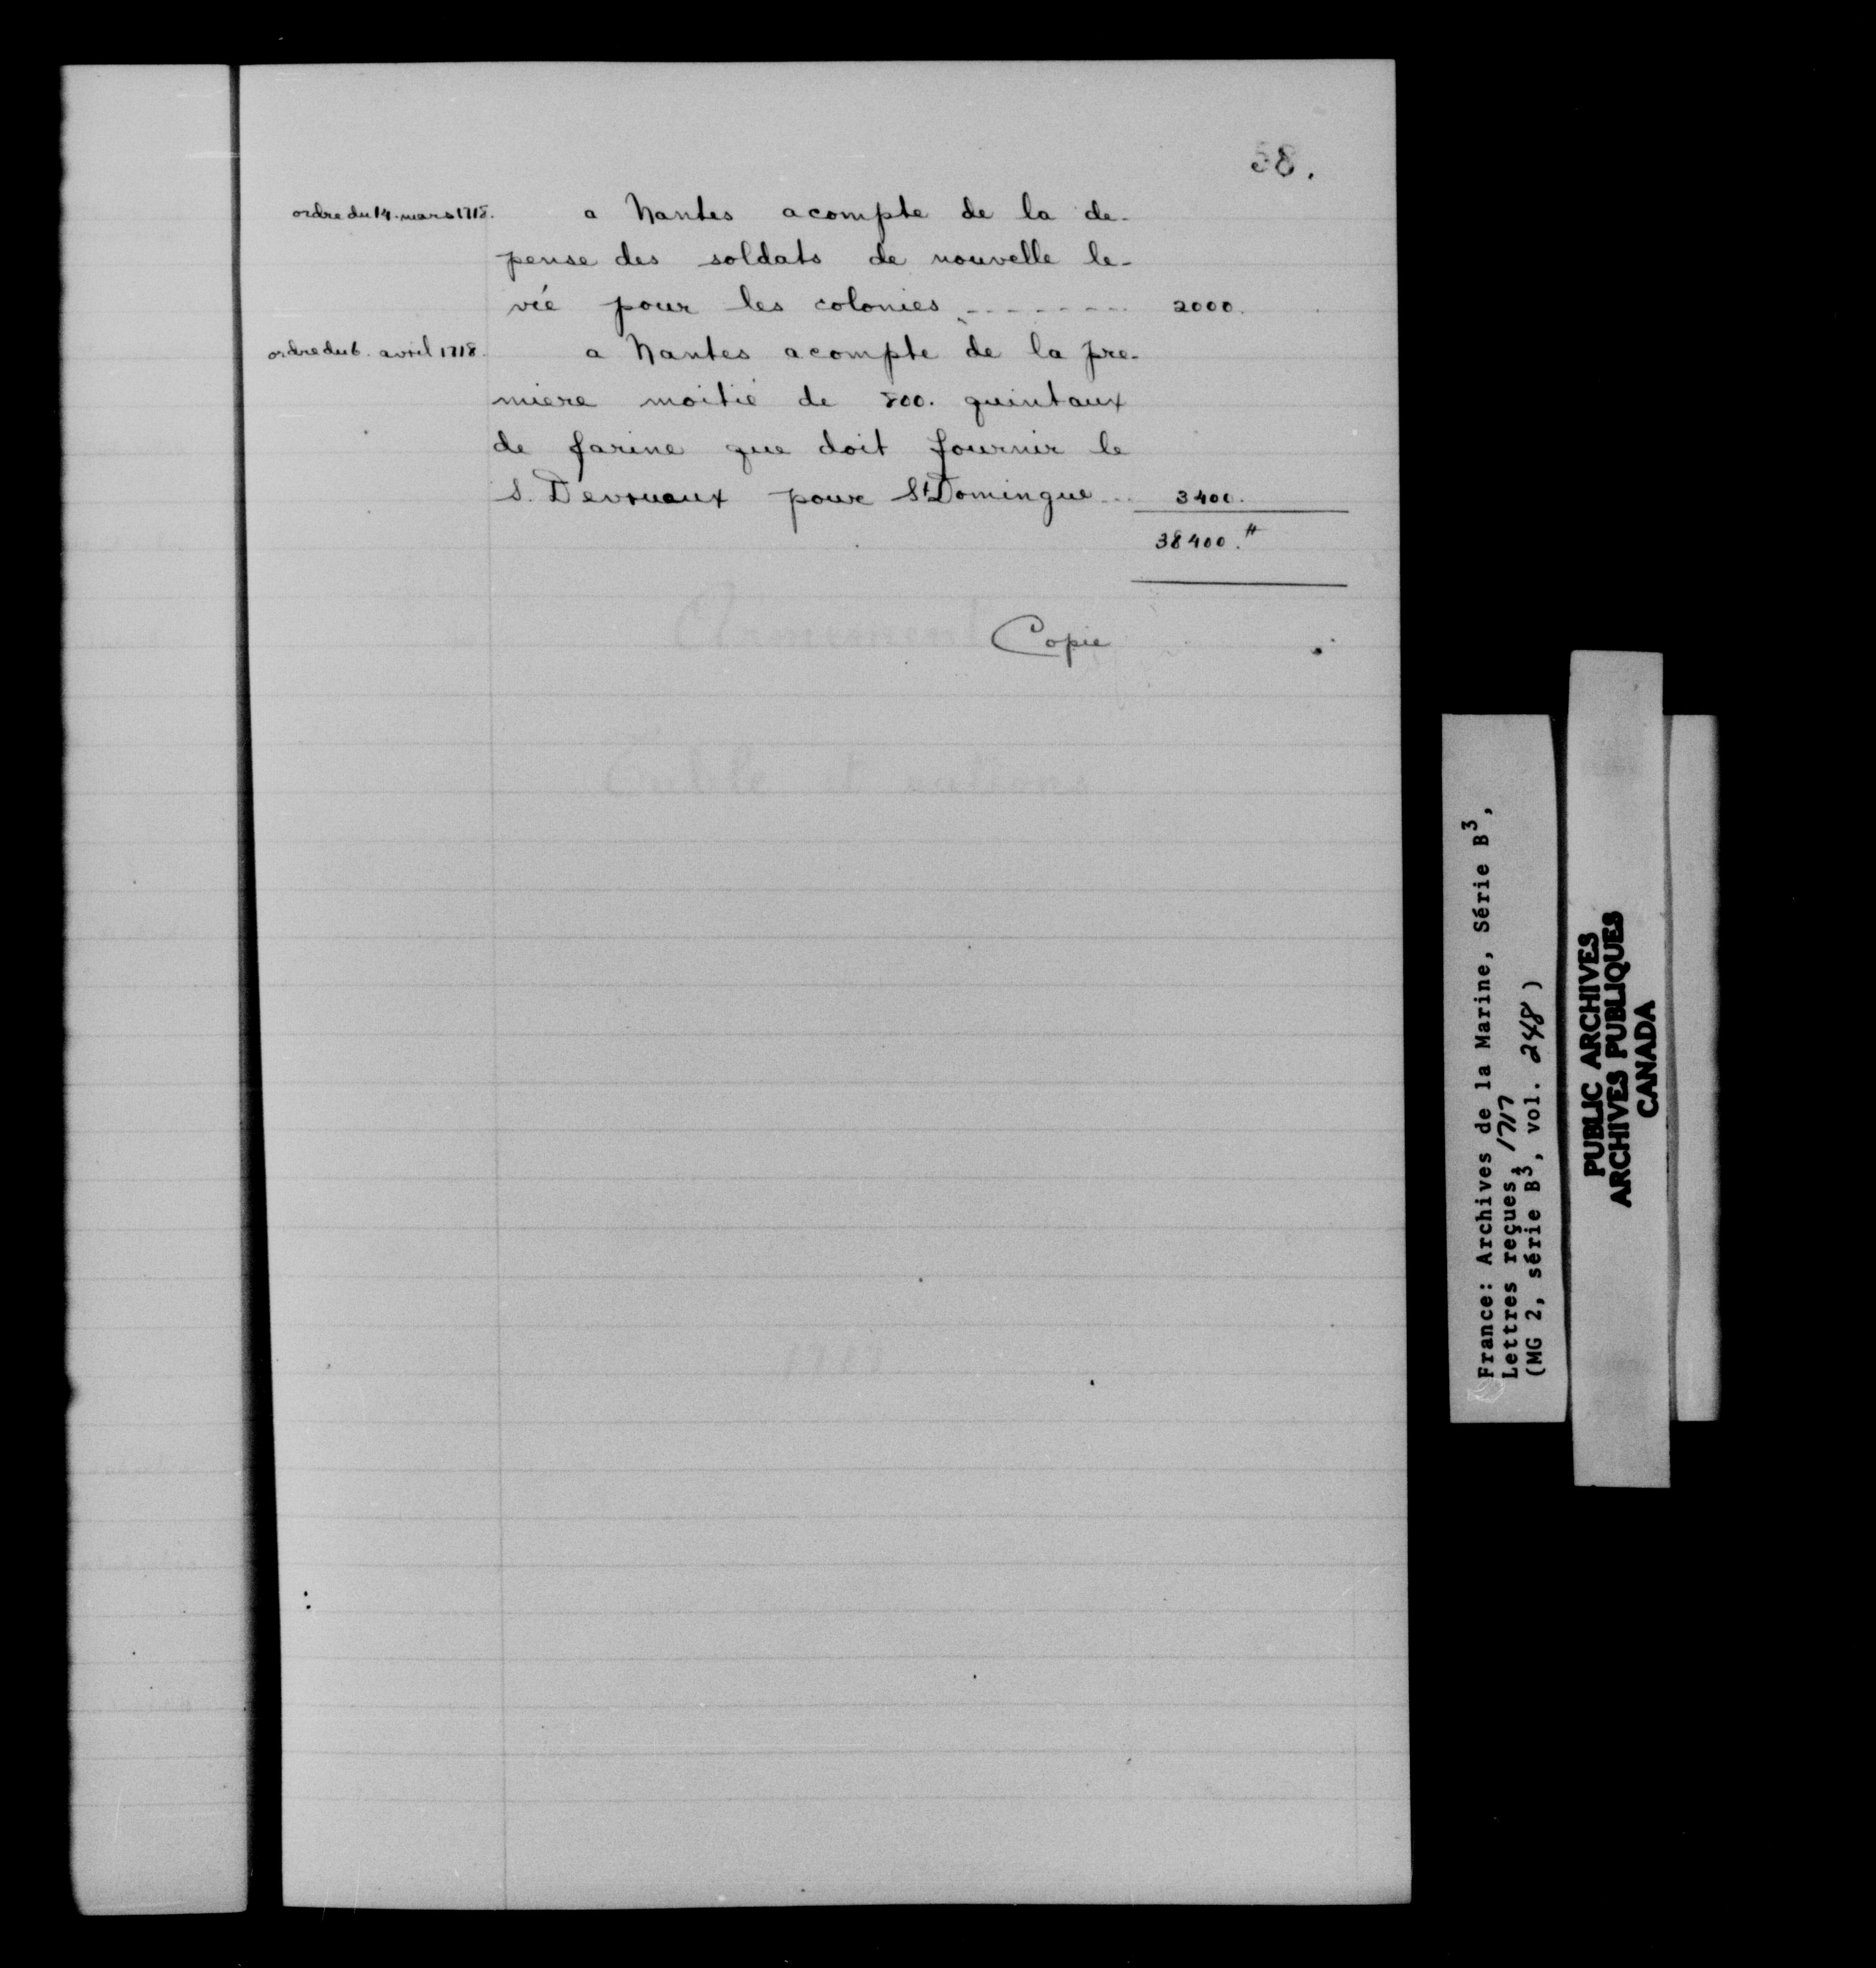 58.
ordre du 14. mars 1718. a Nantes acompte de la de-
pense des soldats de nouvelle le-
vée pour les colonies 2000.
ordre du 6. avril 1718. a Nantes acompte de la pre-
miere moitié de 800. quintaux
de farine que doit fournir le
S. pour St Domingue 3400.
38400.#
Copie
France: Archives de la Marine, Série B3,
Lettres reçues, 1717
(MG 2, série B3, vol. 248)
PUBLIC ARCHIVES
ARCHIVES PUBLIQUES
CANADA